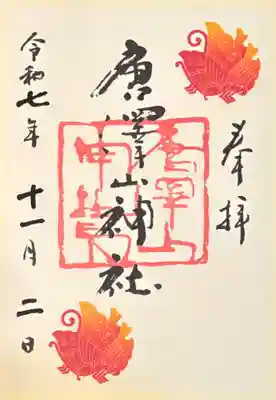 奉拝
唐澤山神社
令和七年 十一月 二日